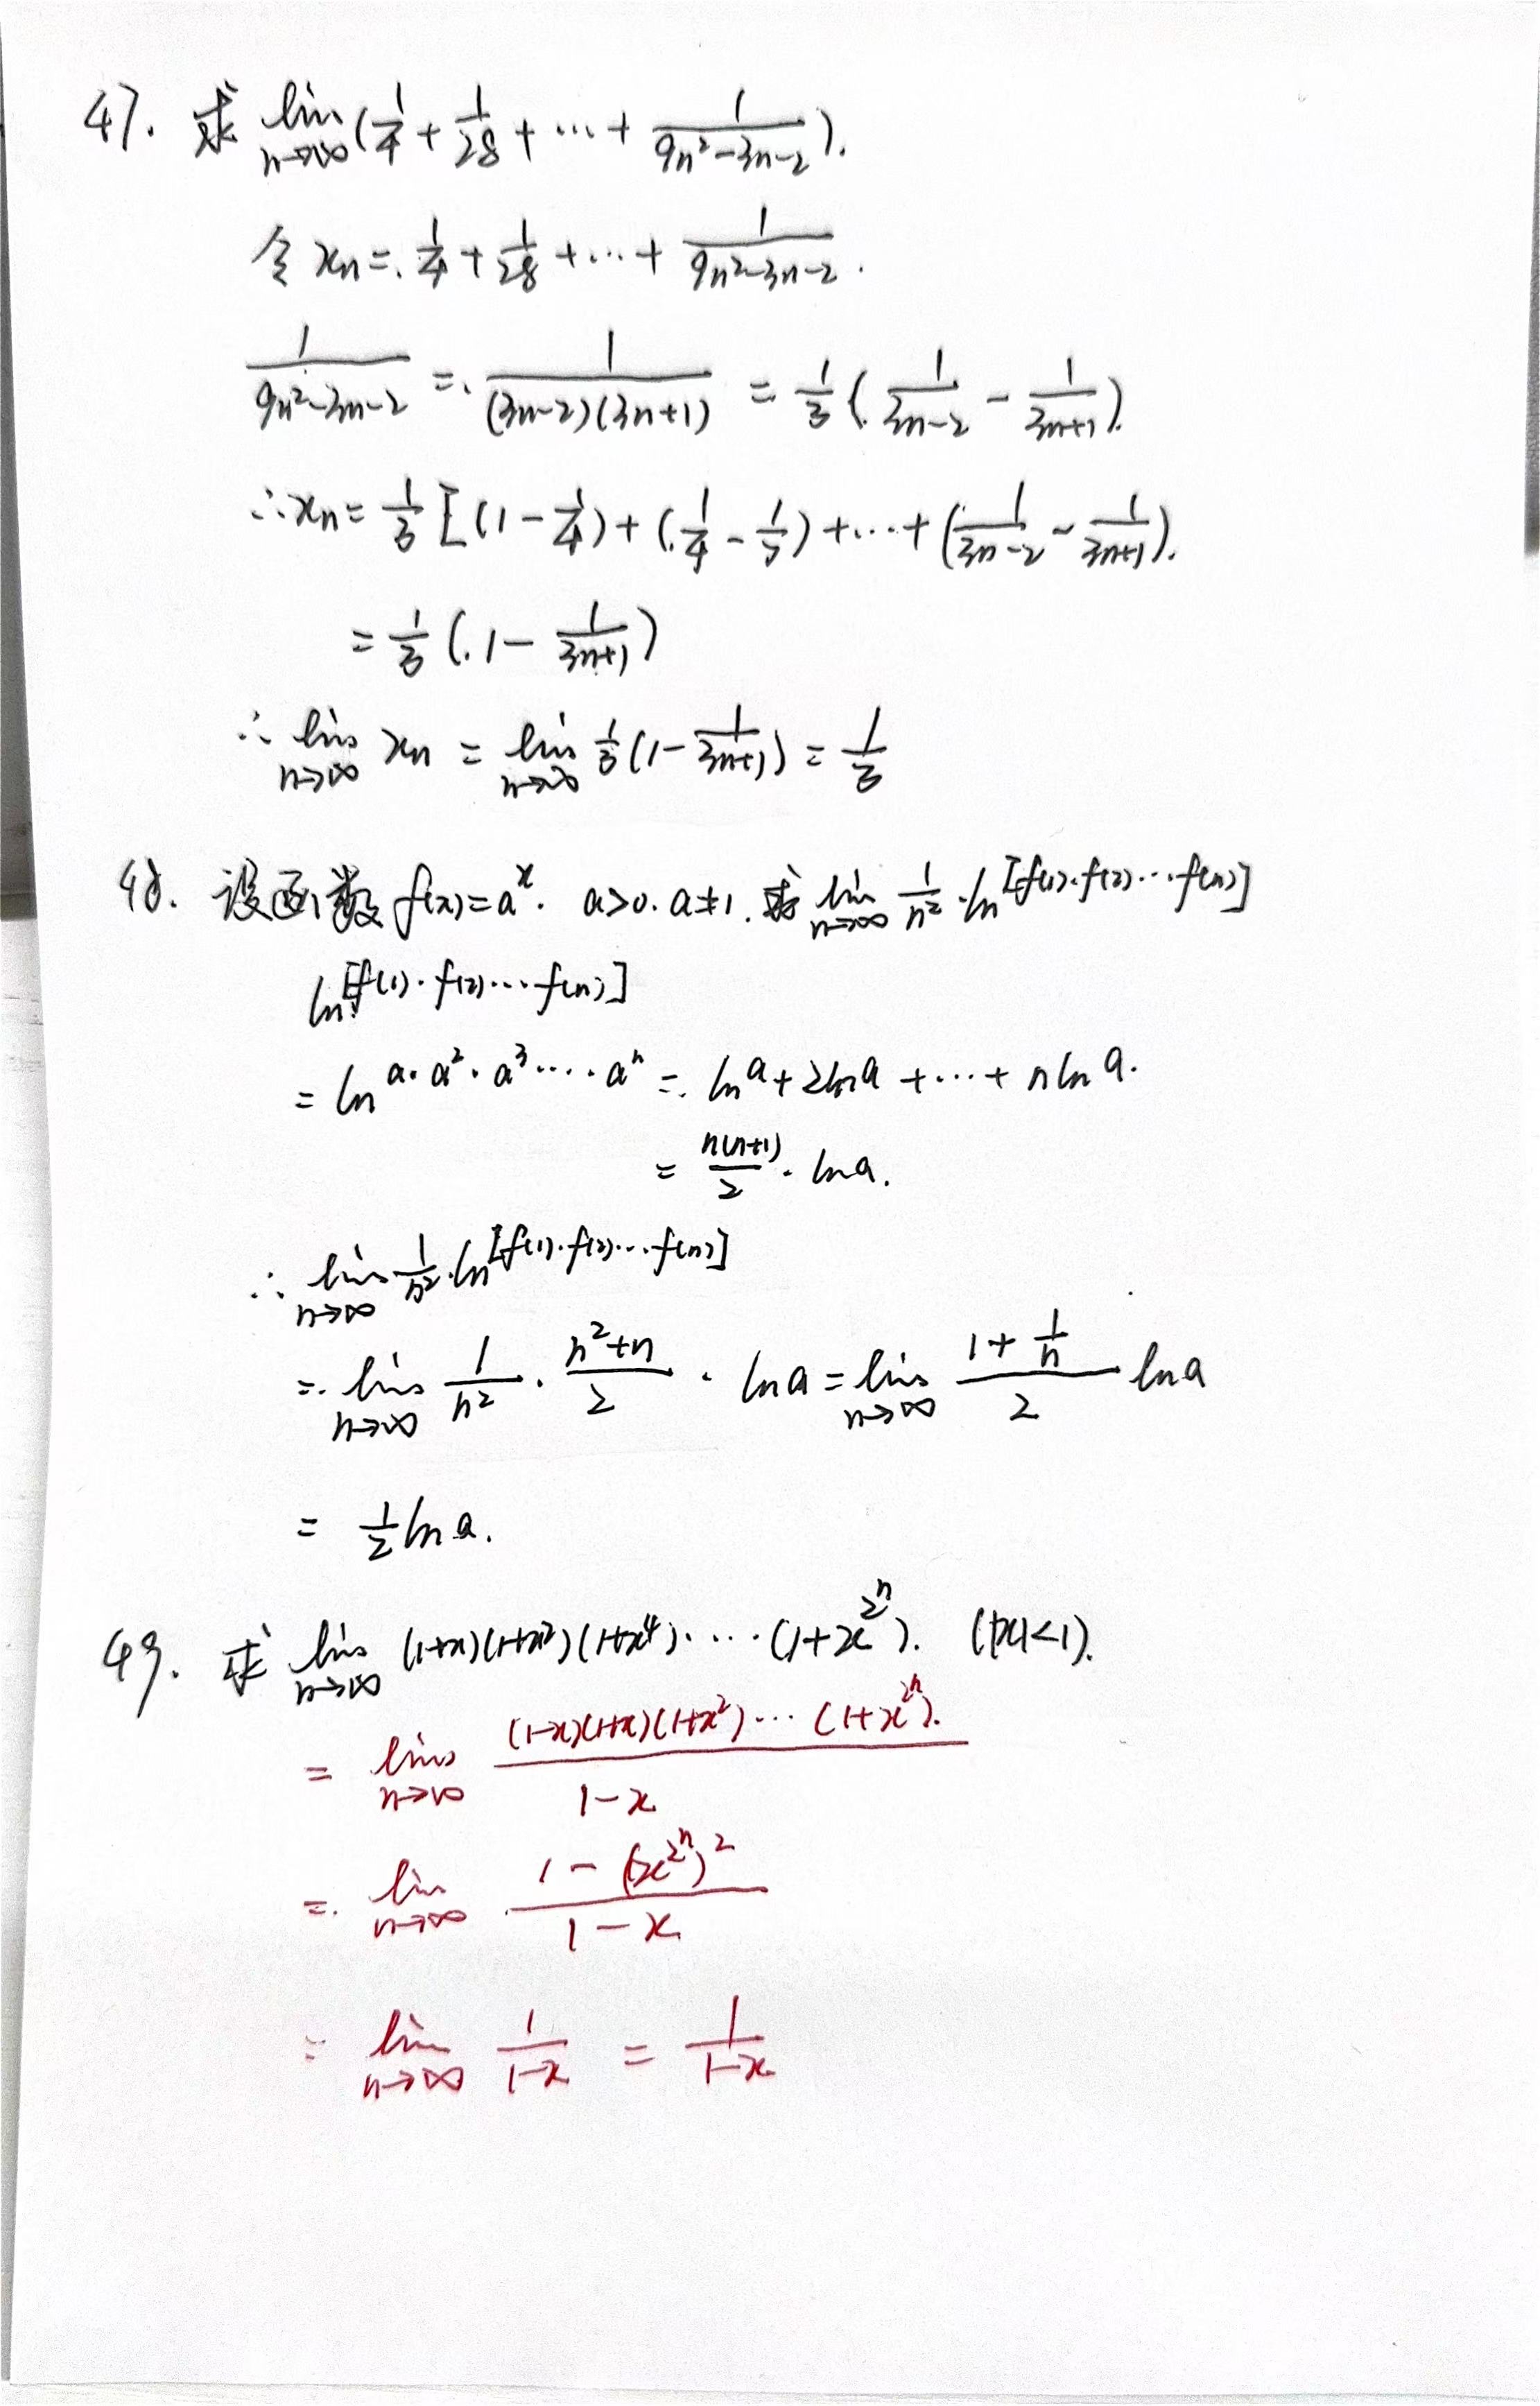 47. 求 lim n→∞ (1/4 + 1/28 + ⋯ + 1/(9n²-3n-2)).
令 xn = 1/4 + 1/28 + ⋯ + 1/(9n²-3n-2).
1/(9n²-3n-2) = 1/((3n-2)(3n+1)) = 1/3 (1/(3n-2) - 1/(3n+1)).
∴ xn = 1/3 [(1 - 1/4) + (1/4 - 1/7) + ⋯ + (1/(3n-2) - 1/(3n+1)).
= 1/3 (1 - 1/(3n+1))
∴ lim n→∞ xn = lim n→∞ 1/3 (1 - 1/(3n+1)) = 1/3
48. 设函数 f(x) = a^x. a>0. a≠1. 求 lim n→∞ 1/n² · ln[f(1)·f(2)⋯f(n)]
ln[f(1)·f(2)⋯f(n)]
= ln a·a²·a³·⋯·aⁿ = ln a + 2ln a + ⋯ + n ln a.
= n(n+1)/2 · ln a.
∴ lim n→∞ 1/n² · ln[f(1)·f(2)⋯f(n)]
= lim n→∞ 1/n² · (n²+n)/2 · ln a = lim n→∞ (1 + 1/n)/2 ln a
= 1/2 ln a.
49. 求 lim n→∞ (1+x)(1+x²)(1+x⁴)·⋯·(1+x^(2^n)). (|x|<1).
= lim n→∞ (1-x)(1+x)(1+x²)⋯(1+x^(2^n))/(1-x)
= lim n→∞ (1 - (x^(2^n))²)/(1-x)
= lim n→∞ 1/(1-x) = 1/(1-x)